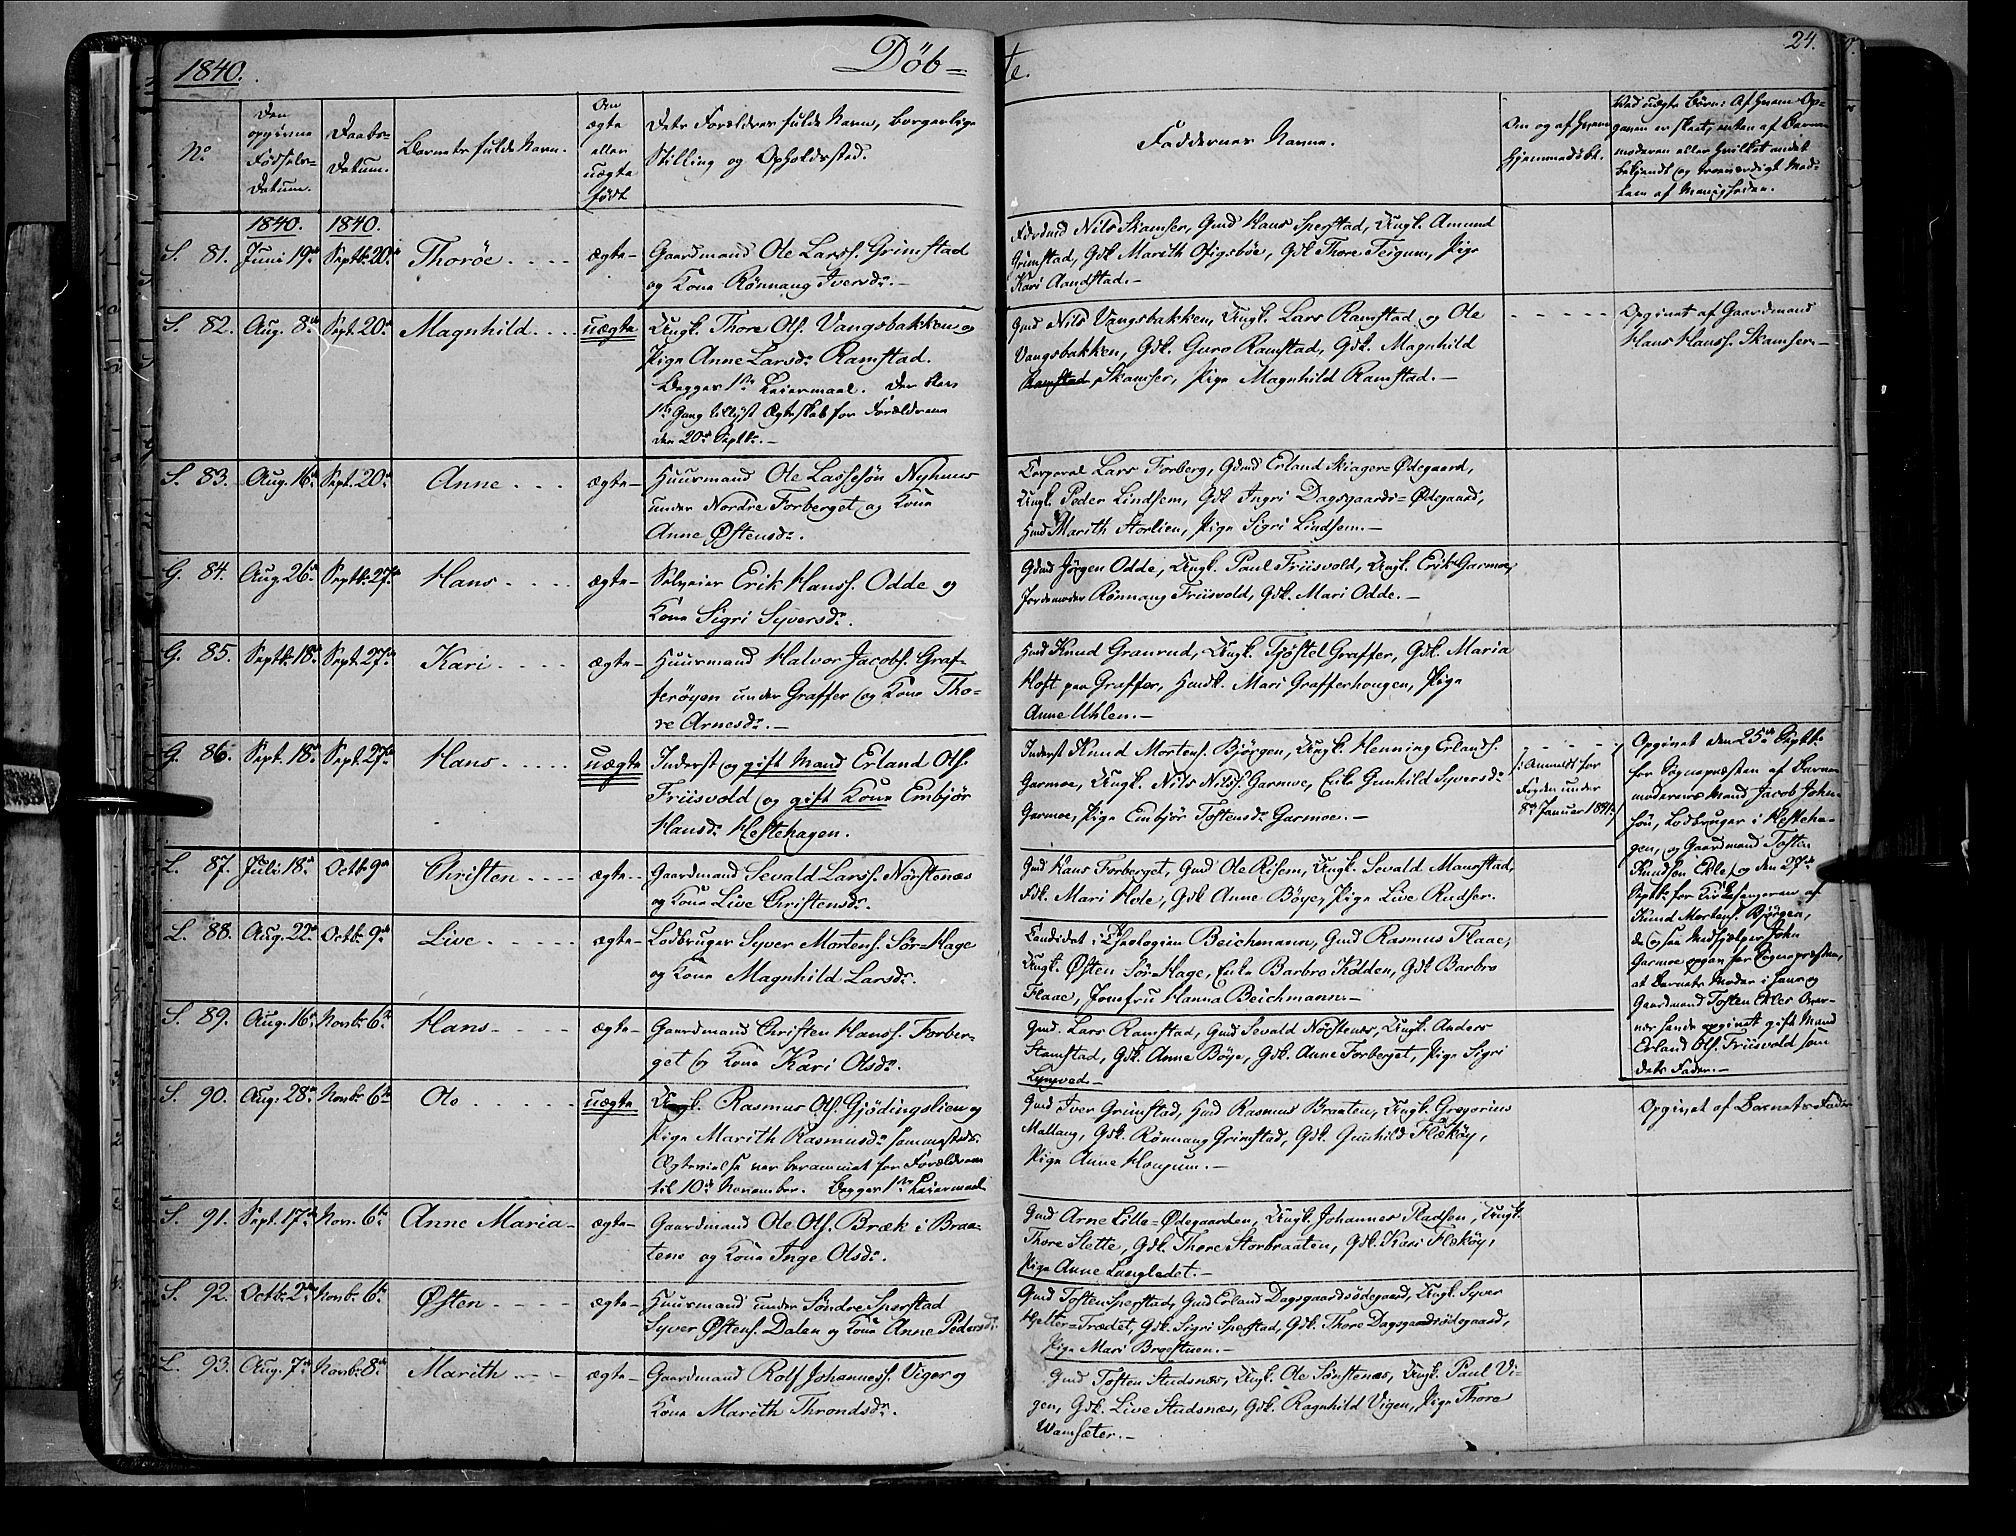 1840.
Döb=
te.
24.
No
Den opgivne Fødsels-Datum.
Daabs-Datum.
Barnets fulde Navn.
Om ægte eller uægte født
Dets Forældres fulde Navn, borgerlige Stilling og Opholdssted.
Faddernes Navne.
Om og af hvem hjemmedøbt.
Ved uægte Børn: Af hvem Opgaven er skeet, enten af Barnemoderen eller hvilket andet bekjendt og troværdigt Medlem af Menigheden.
1840. 1840.
S. 81. Juni 19de Septbr. 20de Thoröe. ægte
Gaardmand Ole Larss. Grimstad
og Kone Rönnaug Iversdr.
Nils Skamser, Gmd Hans Sperstad, Ungk. Amund
Grimstad, Gdk. Marith Ofigsböe, Gdk Thore Teigum, Pige
Kari Aandstad.
S. 82. Aug. 8de Sept. 20de Magnhild. uægte
Ungk. Thore Ols. Vangsbakken og
Pige Anne Larsdr. Ramstad.
Begges 1ste Leiermaal. Der blev
1ste Gang tillyst Ægteskab for Forældrene
den 20de Septbr.
Gmd Nils Vangsbakken, Ungk. Lars Ramstad og Ole
Vangsbakken, Gdk. Guro Ramstad, Gdk. Magnhild
Ramstad, Skamser, Pige Magnhild Ramstad.
Opgivet af Gaardmand
Hans Hanss. Skamser.
S. 83. Aug. 16de Sept. 20de Anne ægte
Huusmand Ole Lassesön Nyhuus
under Nordre Forberget og Kone
Anne Østensdr.
Corporal Lars Forberg, Gdmd Erland Skiager=Ødegaard,
Ungk. Peder Lindsem, Gdk Ingri Dagsgaards=Ødegaard,
Hmd Marith Storlien, Pige Sigri Lindsem.
G. 84. Aug. 26de Septbr. 27de Hans ægte
Selveier Erik Hanss. Odde og
Kone Sigri Syversdr.
Gdmd Jörgen Odde, Ungk. Paul Friisvold, Ungk. Erik Garmoe,
Jordemoder Rönnaug Friisvold, Gdk. Mari Odde.
G. 85. Septbr. 18de Sept. 27de Kari ægte
Huusmand Halvor Jacobs. Graf-
feröyen under Graffer og Kone Tho-
re Arnesdr.
Hmd Knud Granrud, Ungk. Tjöstel Graffer, Gdk. Maria
Hoft paa Graffer, Hmdk. Mari Grafferhougen, Pige
Anne Uhlen.
G. 86. Sept. 18de Sept. 27de Hans uægte
Inderst og gift Mand Erland Ols.
Friisvold og gift Kone Embjör
Hansdr. Hestehagen.
Inderst Knud Mortens. Bjørgen, Ungk. Henning Erlands.
Garmoe, Ungk. Nils Nilss. Garmoe, Enke Gunhild Syversdr.
Garmoe, Pige Embjör Tostensdr. Garmoe.
Anmeldt for
Fogden under
8de Januar 1841.
Opgivet den 25de Septbr.
for Sognepræsten af Barne-
moderens Mand Jacob John-
sön, Lodbruger i Hesteha-
gen, og Gaardmand Tosten
Knudsen Ekle, og den 27de
Septbr. for Kirkesangeren af
Knud Mortens. Bjørgen,
da og saa Medhjælper John
Garmoe opgav for Sognepræsten,
at Barnets Moder i hans og
Gaardmand Tosten Ekles Nær-
værelse havde opgivet gift Mand
Erland Ols. Friisvold som
dets Fader.
L. 87. Juli 18de Octbr. 9de Christen ægte
Gaardmand Sevald Larss. Nörstenæs
og Kone Live Christensdr.
Gmd Hans Forberget, Gmd Ole Risem, Ungk. Sevald Maurstad,
Gdk. Mari Hole, Gdk Anne Böye, Pige Live Rudser.
L. 88. Aug. 22de Octbr. 9de Live ægte
Lodbruger Syver Mortens. Sör-Hage
og Kone Magnhild Larsdr.
Candidat i Theologien Beichmann, Gmd Rasmus Flaae,
Ungk. Østen Sör-Hage, Enke Barbro Kolden, Gdk Barbro
Flaae, Jomfru Hanna Beichmann
S. 89. Aug. 16de Novbr. 6te Hans ægte
Gaardmand Christen Hanss. Forber-
get og Kone Kari Olsdr.
Gmd. Lars Ramstad, Gmd Sevald Nörstenes, Ungk. Anders
Stamstad, Gdk. Anne Böye, Gdk. Anne Forberget, Pige Sigri
Lyngved
S. 90. Aug. 28de Novbr. 6te Ole uægte
Ungk. Rasmus Ols. Gjödingslien og
Pige Marith Rasmusdr. sammesteds.
Ægtevielse var berammet for Forældrene
til 10de November. Begges 1ste Leiermaal
Gmd Iver Grimstad, Hmd Rasmus Braaten, Ungk. Gregorius
Mallang, Gdk. Rönnaug Grimstad, Gdk. Gunhild Fleköy,
Pige Anne Hougum.
Opgivet af Barnets Fader
S. 91. Sept. 17de Nov. 6te Anne Maria ægte
Gaardmand Ole Ols. Bræk i Braa-
tene og Kone Inge Olsdr.
Gmd Arne Lille=Ødegaarden, Ungk. Johannes Pladsen, Ungk.
Thore Slette, Gdk. Thore Storbraaten, Gdk. Kari Flekøy,
Pige Anne Langledet.
S. 92. Octbr. 2den Novbr. 6te Østen ægte
Huusmand under Söndre Sperstad
Syver Østens. Dalen og Kone Anne Pedersdr.
Gmd Tosten Sperstad, Gmd Erland Dagsgaardsödegaard, Ungk. Syver
Helter=Trædet, Gdk. Sigri Sperstad, Gdk. Thore Dagsgaardsödegaard,
Pige Mari Bræstuen.
L. 93. Aug. 7de Novbr. 8de Marith ægte
Gaardmand Rolf Johanness. Vigen og
Kone Marith Throndsdr.
Gmd Tosten Studsnæs, Ungk. Ole Sönstenæs, Ungk. Paul Vi-
gen, Gdk. Live Studsnæs, Gdk. Ragnhild Vigen, Pige Thore
Wamsæter.